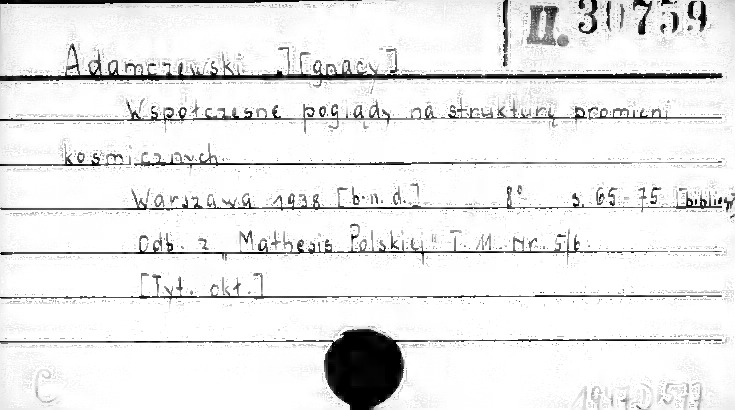 II. 30759
Adamczewski J[gnacy]
Współczesne poglądy na strukturę promieni
kosmicznych.
Warszawa 1938 [b.n.d.] 8° s. 65-75 [bibliogr]
Odb. z „Mathesis Polskiej" T. XI. Nr. 5/6
[Tyt. okł.]
C
1947 D 577